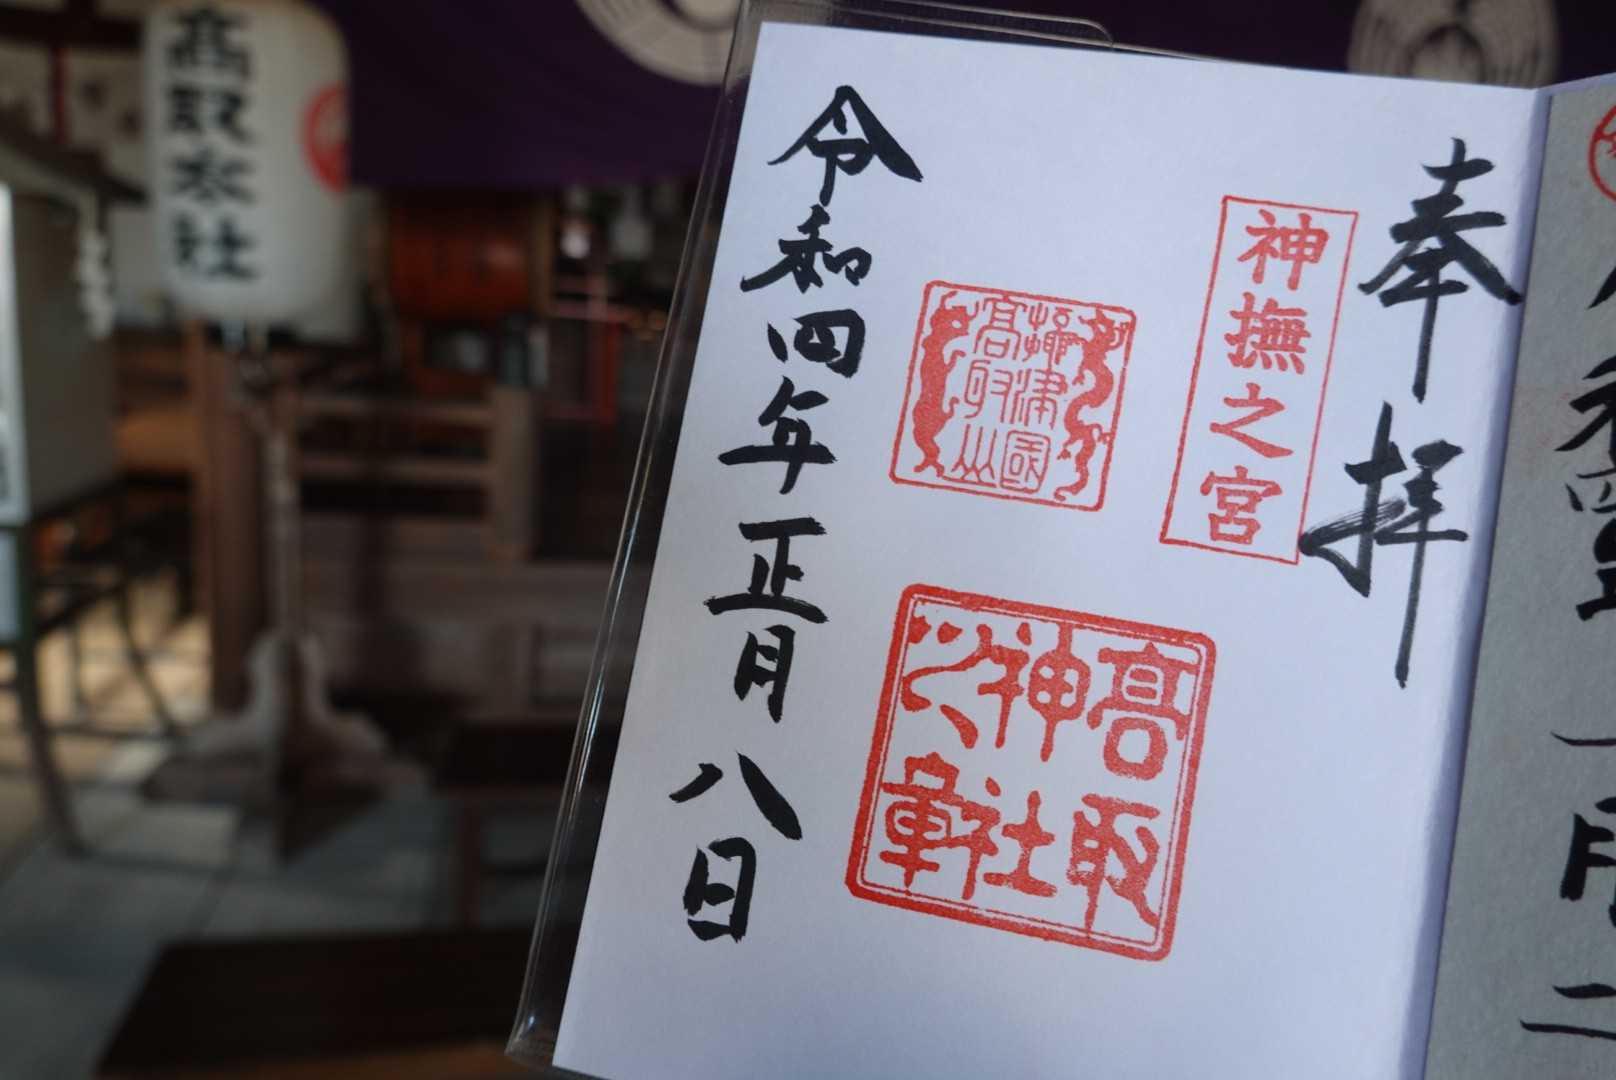 高取本社
奉拝
神撫之宮
攝津國
高取山
高取
神社
之章
令和四年正月八日